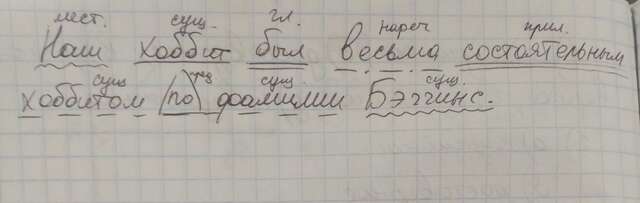 мест. сущ. гл. нареч прил.
Наш хоббит был весьма состоятельным
сущ пр сущ. сущ.
хоббитом по фамилии Бэггинс.